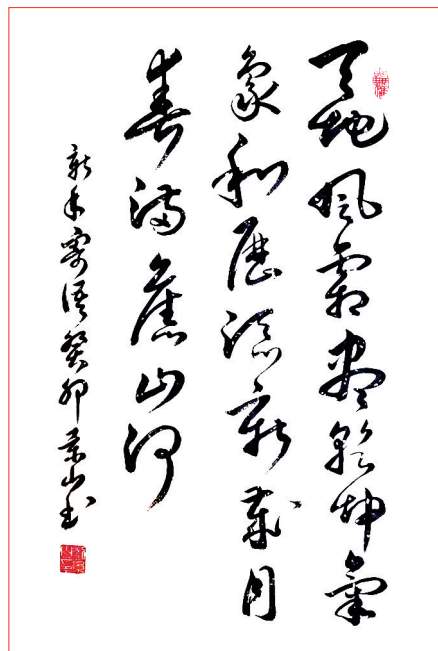 天地風霜盡乾坤氣
象和歷添新歲月
春滿舊山河
新年寄語癸卯景山书